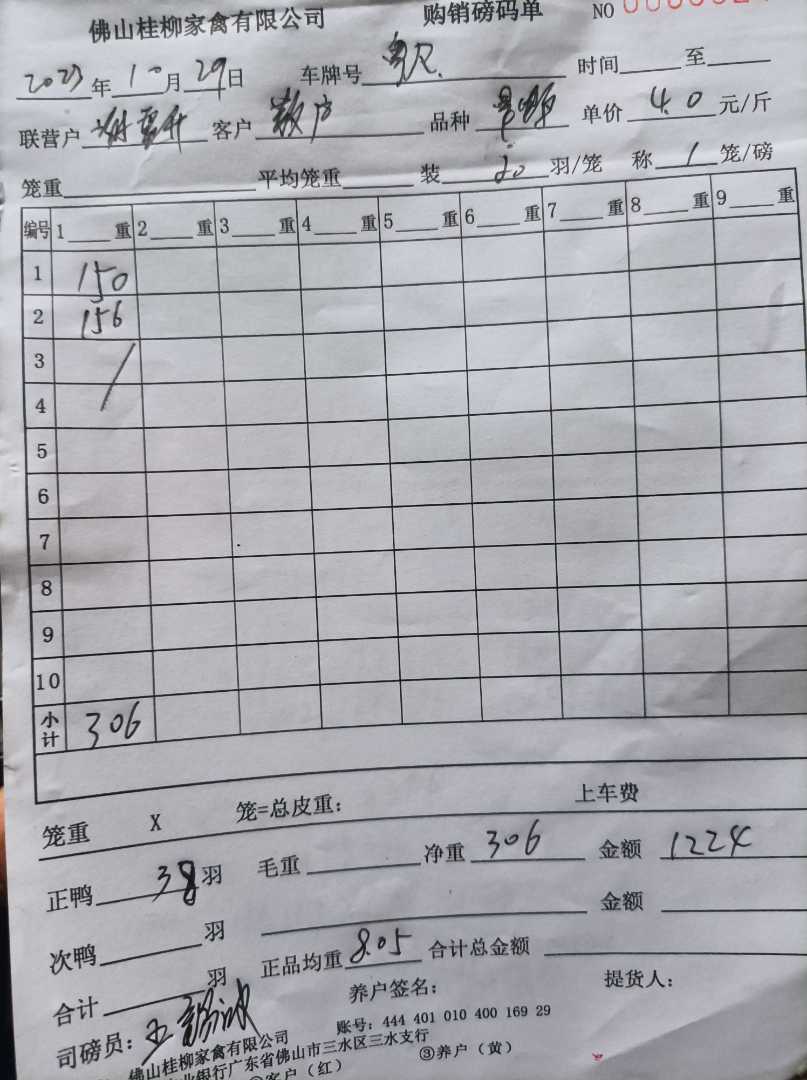 佛山桂柳家禽有限公司 购销磅码单 NO
2023年10月29日 车牌号 时间 至
联营户 客户 散户 品种 单价 4.0 元/斤
笼重 平均笼重 装 20 羽/笼 称 1 笼/磅
编号 1 重 2 重 3 重 4 重 5 重 6 重 7 重 8 重 9 重
1 150
2 156
3 /
4
5
6
7
8
9
10
小计 306
笼重 X 笼=总皮重: 上车费
正鸭 38 羽 毛重 净重 306 金额 1224
次鸭 羽 金额
合计 羽 正品均重 8.05 合计总金额
司磅员: 养户签名: 提货人:
佛山桂柳家禽有限公司 账号: 444 401 010 400 169 29
业银行广东省佛山市三水区三水支行
客户(红) ③养户(黄)